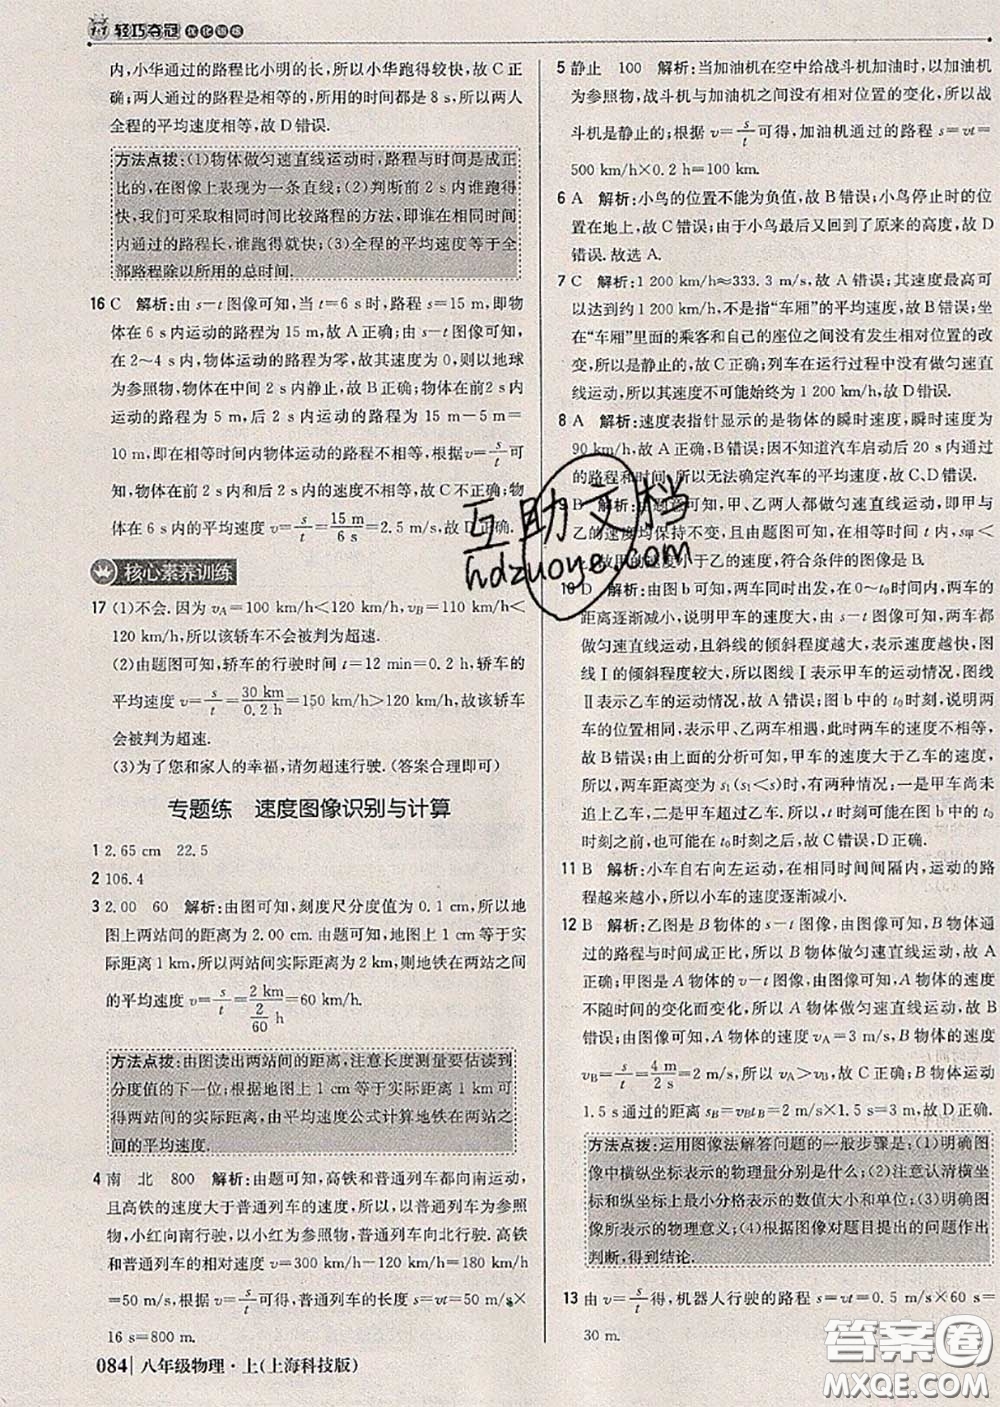 1+1 轻巧夺冠 优化训练
内,小华通过的路程比小明的长,所以小华跑得较快,故 C 正
确;两人通过的路程是相等的,所用的时间都是 8 s,所以两人
全程的平均速度相等,故 D 错误.
方法点拨:(1)物体做匀速直线运动时,路程与时间是成正
比的,在图像上表现为一条直线;(2)判断前 2 s 内谁跑得
快,我们可采取相同时间比较路程的方法,即谁在相同时间
内通过的路程长,谁跑得就快;(3)全程的平均速度等于全
部路程除以所用的总时间.
16 C 解析:由 s—t 图像可知,当 t=6 s 时,路程 s=15 m,即物
体在 6 s 内运动的路程为 15 m,故 A 正确;由 s—t 图像可知,
在 2~4 s 内,物体运动的路程为零,故其速度为 0,则以地球
为参照物,物体在中间 2 s 内静止,故 B 正确;物体在前 2 s 内
运动的路程为 5 m,后 2 s 内运动的路程为 15 m-5 m=
10 m,即在相等时间内物体运动的路程不相等,根据 v=s/t 可
知,物体在前 2 s 内和后 2 s 内的速度不相等,故 C 不正确;物
体在 6 s 内的平均速度 v=s/t=15 m/6 s=2.5 m/s,故 D 正确.
核心素养训练
17 (1)不会.因为 vA=100 km/h<120 km/h,vB=110 km/h<
120 km/h,所以该轿车不会被判为超速.
(2)由题图可知,轿车的行驶时间 t=12 min=0.2 h,轿车的
平均速度 v=s/t=30 km/0.2 h=150 km/h>120 km/h,故该轿车
会被判为超速.
(3)为了您和家人的幸福,请勿超速行驶.(答案合理即可)
专题练 速度图像识别与计算
1 2.65 cm 22.5
2 106.4
3 2.00 60 解析:由图可知,刻度尺分度值为 0.1 cm,所以地
图上两站间的距离为 2.00 cm.由题可知,地图上 1 cm 等于实
际距离 1 km,所以两站间实际距离为 2 km,则地铁在两站之间
的平均速度 v=s/t=2 km/(2/60 h)=60 km/h.
方法点拨:由图读出两站间的距离,注意长度测量要估读到
分度值的下一位;根据地图上 1 cm 等于实际距离 1 km 可
得两站间的实际距离,由平均速度公式计算地铁在两站之
间的平均速度.
4 南 北 800 解析:由题可知,高铁和普通列车都向南运动,
且高铁的速度大于普通列车的速度,以普通列车为参照物,
小红向南行驶,以小红为参照物,普通列车向北行驶.高铁
和普通列车的相对速度 v=300 km/h-120 km/h=180 km/h
=50 m/s,根据 v=s/t 可得,普通列车的长度 s=vt=50 m/s×
16 s=800 m.
084 八年级物理·上(上海科技版)
5 静止 100 解析:当加油机在空中给战斗机加油时,以加油机
为参照物,战斗机与加油机之间没有相对位置的变化,所以战
斗机是静止的;根据 v=s/t 可得,加油机通过的路程 s=vt=
500 km/h×0.2 h=100 km.
6 A 解析:小鸟的位置不能为负值,故 B 错误;小鸟停止时的位
置在地上,故 C 错误;由于小鸟最后又回到了原来的高度,故 D
错误.故选 A.
7 C 解析:1 200 km/h≈333.3 m/s,故 A 错误;其速度最高可
以达到约 1 200 km/h,不是指“车厢”的平均速度,故 B 错误;坐
在“车厢”里面的乘客和自己的座位之间没有发生相对位置的改
变,所以是静止的,故 C 正确;列车在运行过程中没有做匀速直
线运动,所以其速度不可能始终为 1 200 km/h,故 D 错误.
8 A 解析:速度表指针显示的是物体的瞬时速度,瞬时速度为
90 km/h,故 A 正确,B 错误;因不知道汽车启动后 20 s 内通过
的路程和时间,所以无法确定汽车的平均速度,故 C、D 错误.
9 B 解析:由题可知,甲、乙两人都做匀速直线运动,即甲与
乙的速度均保持不变,且由题图可知,在相等时间 t 内,s甲
故甲的速度小于乙的速度,符合条件的图像是 B.
10 D 解析:由图 b 可知,两车同时同地出发,在 t0 内,两车的
距离逐渐减小,说明甲车的速度大,由 s—t 图像可知,两车都
做匀速直线运动,且斜线的倾斜程度越大,表示速度越快,图
线Ⅰ的倾斜程度较大,所以Ⅰ表示甲车的运动情况,图线
Ⅱ表示乙车的运动情况,故 A 错误;图 b 中的 t0 时刻,说明两
车的位置相同,表示甲、乙两车相遇,此时两车的速度不相等,
故 B 错误;由上面的分析可知,甲车的速度大于乙车的速度,
所以,当距离变为 s1(s1<s)时,有两种情况:一是甲车尚未
追上乙车,二是甲车超过了乙车,所以,t 时刻可能在图 b 中的 t0
时刻之前,也可能在 t0 时刻之后,故 C 错误,D 正确.
11 B 解析:小车自右向左运动,在相同时间间隔内,运动的路
程越来越小,所以小车的速度逐渐减小.
12 B 解析:乙图是 B 物体的 s—t 图像,由图像可知,B 物体通
过的路程与时间成正比,所以 B 物体做匀速直线运动,故 C
正确;甲图是 A 物体的 v—t 图像,由图像可知,A 物体的速度
不随时间的变化而变化,所以 A 物体做匀速直线运动,故 D
错误;由图像可知,A 物体的速度 vA=3 m/s,B 物体的速度
vB=s/t=4 m/2 s=2 m/s,所以 vA>vB,故 B 正确;B 物体在
1.5 s 通过的距离 sB=vBtB=2 m/s×1.5 s=3 m,故 D 正确.
方法点拨:运用图像法解答问题的一般步骤是:(1)明确图
像中横纵坐标表示的物理量分别是什么;(2)注意认清横坐
标和纵坐标上最小分格表示的数值大小和单位;(3)明确图
像所表示的物理意义;(4)根据图像对题目提出的问题作出
判断,得到结论.
13 由 v=s/t 得,机器人行驶的路程 s=vt=0.5 m/s×60 s=
30 m.
互助文档
hdzuoye.com
答案圈
MXQE.COM